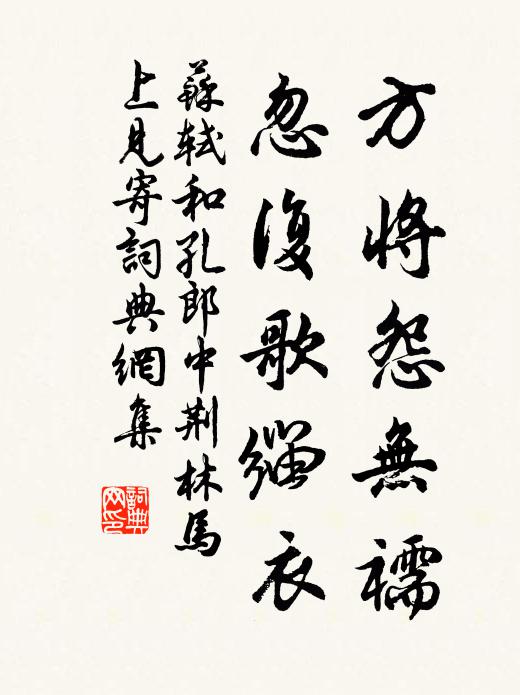 方將怨無襦
忽復歌緇衣
蘇軾和孔郎中荆林馬
上見寄詞典網集
詞典網印